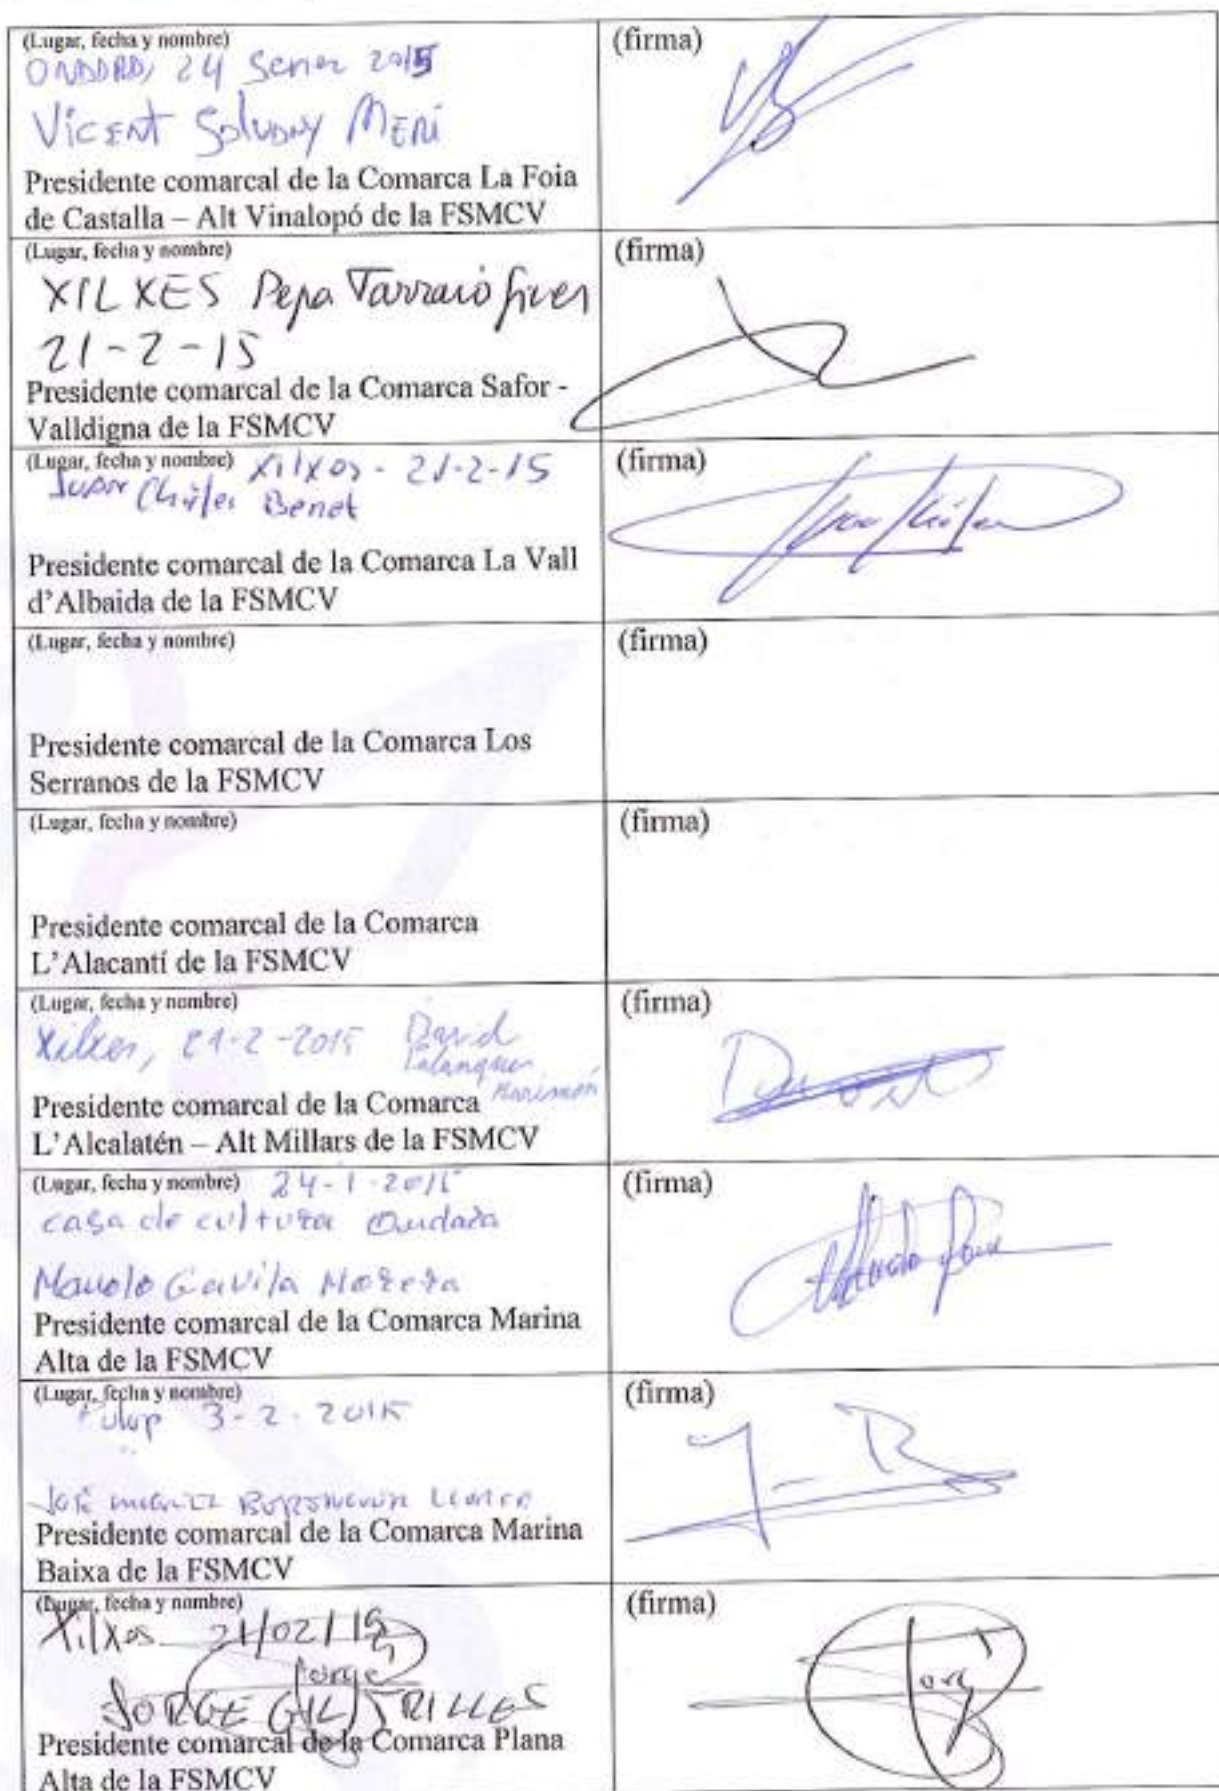 (Lugar, fecha y nombre)
(firma)
24 Gener 2015
Vicent
Presidente comarcal de la Comarca La Foia
de Castalla – Alt Vinalopó de la FSMCV
(Lugar, fecha y nombre)
(firma)
XILXES Pepa
21-2-15
Presidente comarcal de la Comarca Safor -
Valldigna de la FSMCV
(Lugar, fecha y nombre) Xilxes - 21-2-15
(firma)
Benet
Presidente comarcal de la Comarca La Vall
d'Albaida de la FSMCV
(Lugar, fecha y nombre)
(firma)
Presidente comarcal de la Comarca Los
Serranos de la FSMCV
(Lugar, fecha y nombre)
(firma)
Presidente comarcal de la Comarca
L'Alacantí de la FSMCV
(Lugar, fecha y nombre)
(firma)
Xilxes, 21-2-2015 David
Presidente comarcal de la Comarca
L'Alcalatén – Alt Millars de la FSMCV
(Lugar, fecha y nombre) 24-1-2015
(firma)
casa de cultura Ondara
Manolo Gavila
Presidente comarcal de la Comarca Marina
Alta de la FSMCV
(Lugar, fecha y nombre)
(firma)
3-2-2015
José
Presidente comarcal de la Comarca Marina
Baixa de la FSMCV
(Lugar, fecha y nombre)
(firma)
Xilxes 21/02/15
Jorge
JORGE GIL TRILLES
Presidente comarcal de la Comarca Plana
Alta de la FSMCV